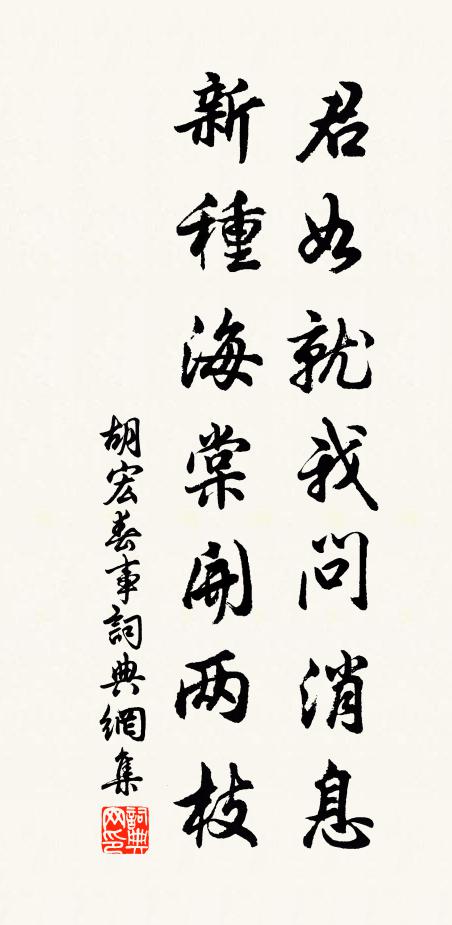 君如就我问消息
新種海棠開两枝
胡宏春事詞典網集
詞典网印